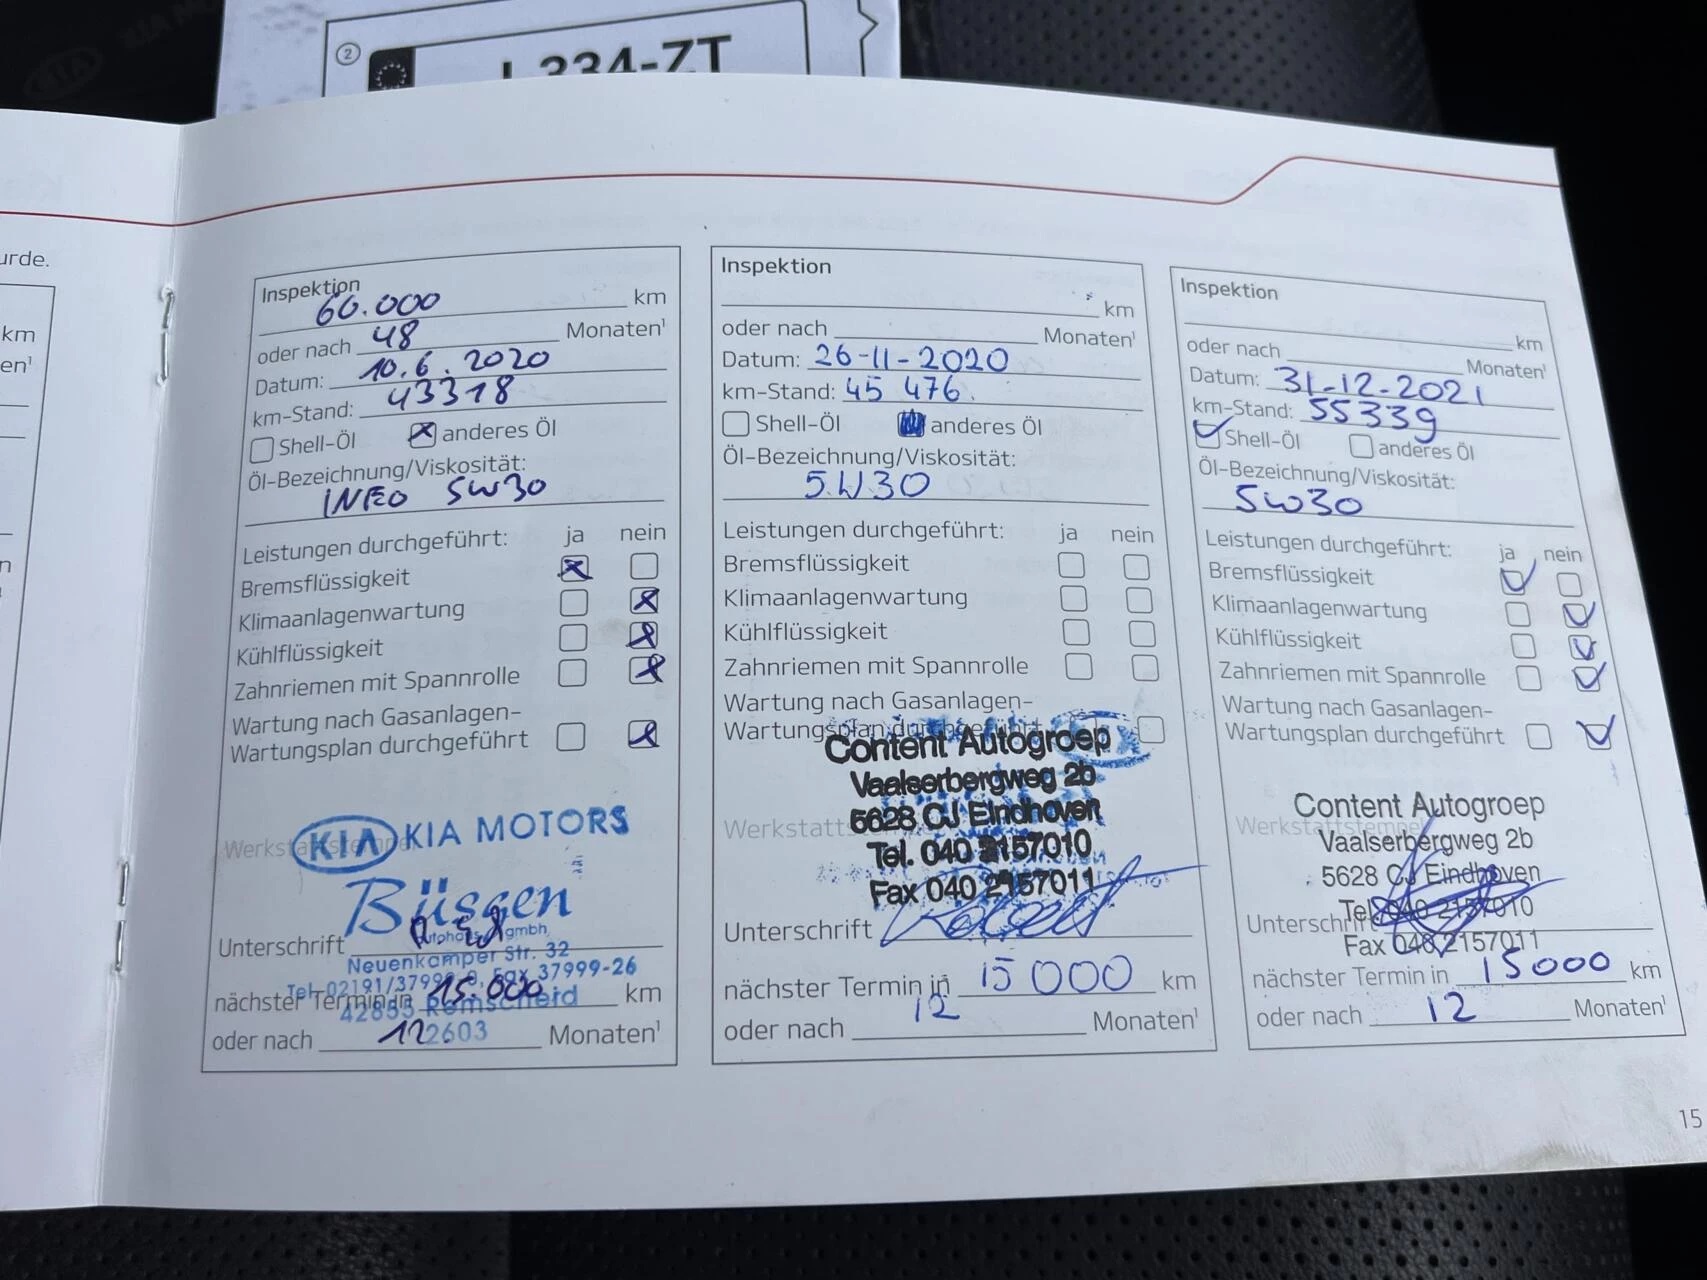 2
L-334-ZT
urde.
km
en¹
n
Inspektion
60.000 km
oder nach 48 Monaten¹
Datum: 10.6.2020
km-Stand: 43318
Shell-Öl anderes Öl
Öl-Bezeichnung/Viskosität:
INEO 5W30
Leistungen durchgeführt: ja nein
Bremsflüssigkeit
Klimaanlagenwartung
Kühlflüssigkeit
Zahnriemen mit Spannrolle
Wartung nach Gasanlagen-
Wartungsplan durchgeführt
KIA KIA MOTORS
Werkstattstempel
Büsgen
Autohaus gmbh
Unterschrift
Neuenkamper Str. 32
Tel. 02191/37999-0, Fax 37999-26
nächster Termin in 15.000 km
42855 Remscheid
oder nach 12 Monaten¹
22603
Inspektion
km
oder nach Monaten¹
Datum: 26-11-2020
km-Stand: 45 476
Shell-Öl anderes Öl
Öl-Bezeichnung/Viskosität:
5.W.30
Leistungen durchgeführt: ja nein
Bremsflüssigkeit
Klimaanlagenwartung
Kühlflüssigkeit
Zahnriemen mit Spannrolle
Wartung nach Gasanlagen-
Wartungsplan durchgeführt
Content Autogroep
Vaalserbergweg 2b
5628 CJ Eindhoven
Werkstattstempel
Tel. 040 2157010
Fax 040 2157011
Unterschrift
nächster Termin in 15000 km
oder nach 12 Monaten¹
Inspektion
km
oder nach Monaten¹
Datum: 31-12-2021
km-Stand: 55339
Shell-Öl anderes Öl
Öl-Bezeichnung/Viskosität:
5W30
Leistungen durchgeführt: ja nein
Bremsflüssigkeit
Klimaanlagenwartung
Kühlflüssigkeit
Zahnriemen mit Spannrolle
Wartung nach Gasanlagen-
Wartungsplan durchgeführt
Content Autogroep
Werkstattstempel
Vaalserbergweg 2b
5628 CJ Eindhoven
Tel. 040 2157010
Unterschrift
Fax 040 2157011
nächster Termin in 15000 km
oder nach 12 Monaten¹
15